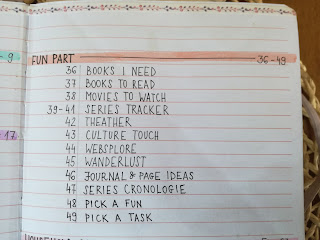 - 9
FUN PART 36-49
36 BOOKS I NEED
37 BOOKS TO READ
38 MOVIES TO WATCH
39-41 SERIES TRACKER
42 THEATHER
43 CULTURE TOUCH
- 17
44 WEBSPLORE
45 WANDERLUST
46 JOURNAL & PAGE IDEAS
47 SERIES CRONOLOGIE
48 PICK A FUN
49 PICK A TASK